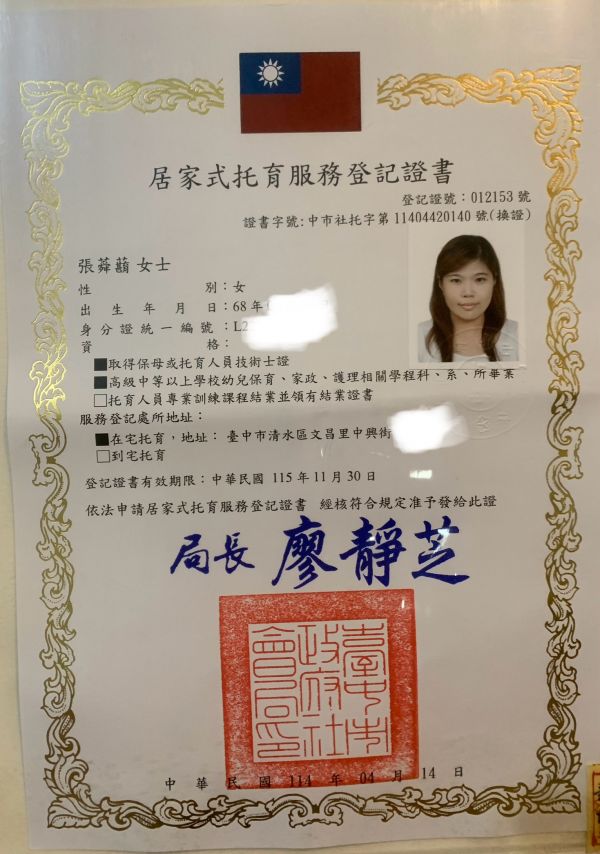 居家式托育服務登記證書
登記證號：012153 號
證書字號:中市社托字第 11404420140 號(換證)
張蕣蘛 女士
性別：女
出生年月日：68 年
身分證統一編號：L2
資格：
■取得保母或托育人員技術士證
■高級中等以上學校幼兒保育、家政、護理相關學程科、系、所畢業
□托育人員專業訓練課程結業並領有結業證書
服務登記處所地址：
■在宅托育，地址： 臺中市清水區文昌里中興街
□到宅托育
登記證書有效期限：中華民國 115 年 11 月 30 日
依法申請居家式托育服務登記證書 經核符合規定准予發給此證
局長 廖靜芝
臺中市政府社會局印
中華民國 114 年 04 月 14 日